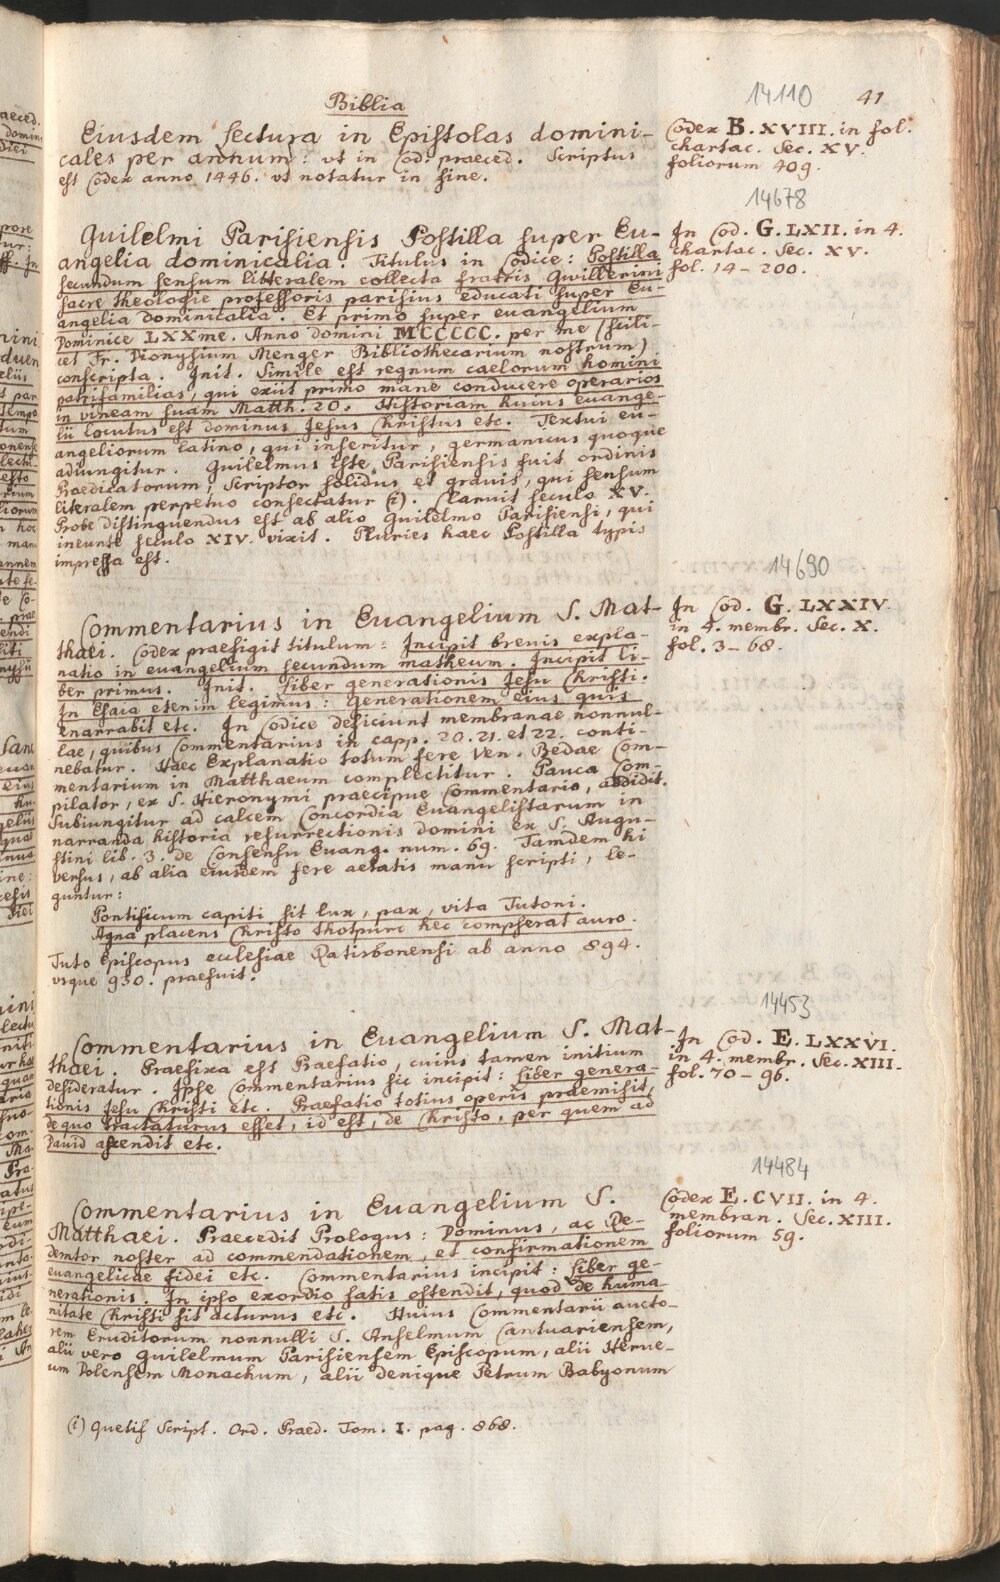 Biblia
14110
41
Eiusdem Lectura in Epistolas domini-
cales per annum: vt in Cod. praeced. Scriptus
est Codex anno 1446. vt notatur in fine.
Codex B. XVIII. in fol.
chartac. Sec. XV.
foliorum 409.
14678
Guilelmi Parisiensis Postilla super Eu-
angelia dominicalia. Titulus in Codice: Postilla
secundum sensum litteralem collecta fratris Gwillerini
sacre theologie professoris parisius educati super Eu-
angelia dominicalia. Et primo super euangelium
Dominice LXXme. Anno domini MCCCCC. per me (scili-
cet Fr. Dionysium Menger Bibliothecarium nostrum)
conscripta. Init. Simile est regnum caelorum homini
patrifamilias, qui exiit primo mane conducere operarios
in vineam suam Matth. 20. Historiam huius euange-
lii locutus est dominus Jesus Christus etc. Textui eu-
angeliorum latino, qui inseritur, germanicus quoque
adiungitur. Guilelmus iste Parisiensis fuit ordinis
Praedicatorum, Scriptor solidus et grauis, qui sensum
literalem perpetuo consectatur (i). Claruit seculo XV.
Probe distinguendus est ab alio Guilelmo Parisiensi, qui
ineunte seculo XIV. vixit. Pluries haec Postilla typis
impressa est.
In Cod. G. LXII. in 4.
chartac. Sec. XV.
fol. 14-200.
14690
Commentarius in Euangelium S. Mat-
thaei. Codex praefigit titulum: Incipit breuis expla-
natio in euangelium secundum matheum. Incipit li-
ber primus. Init. Liber generationis Jesu Christi.
In Esaia etenim legimus: Generationem eius quis
enarrabit etc. In Codice desiciunt membranae nonnul-
lae, quibus Commentarius in capp. 20. 21. et 22. conti-
nebatur. Haec Explanatio totum fere Ven. Bedae Com-
mentarium in Matthaeum complectitur. Pauca Com-
pilator, ex S. Hieronymi praecipue Commentario, addidit.
Subiungitur ad calcem Concordia Euangelistarum in
narranda historia resurrectionis domini ex S. Augu-
stini lib. 3. de Consensu Euang. num. 69. Tamdem hi
versus, ab alia eiusdem fere aetatis manu scripti, le-
guntur:
Pontificum capiti sit lux, pax, vita Tutoni.
Agna placens Christo thotpurc hec compserat auro.
Tuto Episcopus ecclesiae Ratisbonensi ab anno 894.
vsque 930. praefuit.
In Cod. G. LXXIV.
in 4. membr. Sec. X.
fol. 3-68.
14453
Commentarius in Euangelium S. Mat-
thaei. Praefixa est Praefatio, cuius tamen initium
desideratur. Ipse Commentarius sic incipit: Liber genera-
tionis Jesu Christi etc. Praefatio totius operis praemisit,
de quo tractaturus esset, id est, de Christo, per quem ad
Dauid ascendit etc.
In Cod. E. LXXVI.
in 4. membr. Sec. XIII.
fol. 70-96.
14484
Commentarius in Euangelium S.
Matthaei. Praecedit Prologus: Dominus, ac Re-
demtor noster ad commendationem, et confirmationem
euangelicae fidei etc. Commentarius incipit: Liber ge-
nerationis. In ipso exordio satis ostendit, quod de huma-
nitate Christi sit acturus etc. Huius Commentarii aucto-
rem Eruditorum nonnulli S. Anselmum Cantuariensem,
alii vero Guilelmum Parisiensem Episcopum, alii Herue-
um Dolensem Monachum, alii denique Petrum Babyonum
Codex E. CVII. in 4.
membran. Sec. XIII.
foliorum 59.
(i) Quetif Script. Ord. Praed. Tom. I. pag. 868.